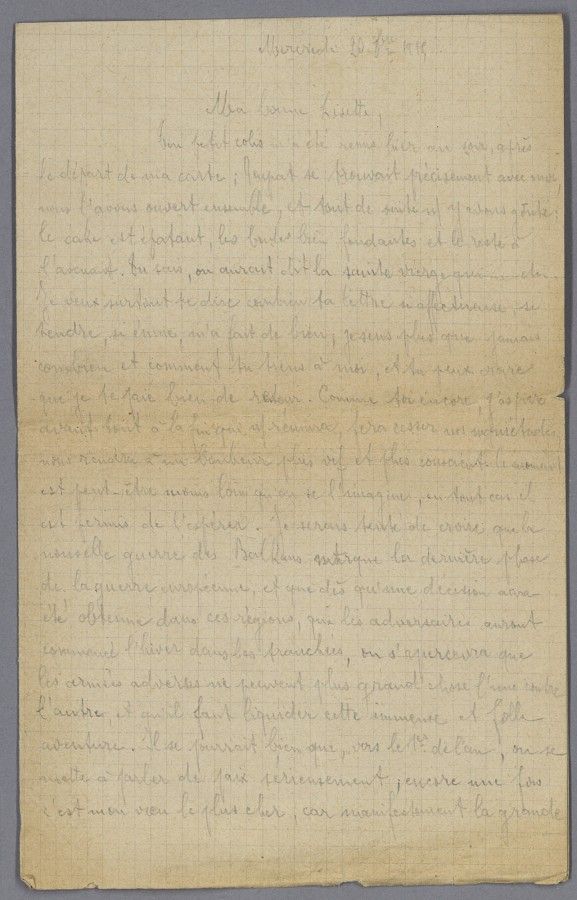 Mercredi 20 1915
Ma bonne Lisette,
Ton petit colis m'a été remis hier au soir, après
le départ de ma carte ; se trouvait précisément avec moi,
nous l'avons ouvert ensemble, et tout de suite nous y avons goûté :
le cake est épatant, les brules bien fondantes et le reste à
l'avenant. Tu sais, on aurait dit la sainte vierge qui
Je veux surtout te dire combien ta lettre si affectueuse, si
tendre, si émue, m'a fait de bien ; je sens plus que jamais
combien et comment tu tiens à moi, et tu peux croire
que je te paie bien de retour. Comme toi encore, j'aspire
avant tout à la fin qui réunira, fera cesser nos
nous rendra à un bonheur plus vif et plus conscient. le moment
est peut-être moins loin qu'on se l'imagine, en tout cas il
est permis de l'espérer. Je serais tenté de croire que la
nouvelle guerre des Balkans marque la dernière phase
de la guerre européenne, et que dès qu'une décision aura
été obtenue dans ces régions, que les adversaires auront
commencé l'hiver dans les tranchées, on s'apercevra que
les armées adverses ne peuvent plus grand'chose l'une contre
l'autre et qu'il faut liquider cette immense et folle
aventure. Il se pourrait bien que, vers le 1er de l'an, on se
mette à parler de paix sérieusement ; encore une fois
c'est mon vœu le plus cher, car manifestement la grande